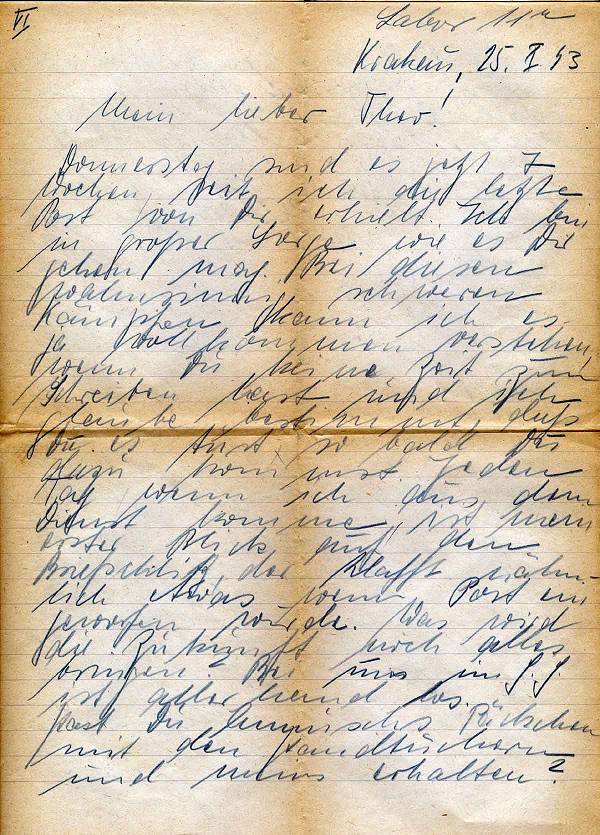 VI
Krakau, 25. I 43
Mein lieber Theo!
Donnerstag sind es jetzt 7
Wochen, seit ich die letzte
Post von Dir erhielt. Ich bin
in großer Sorge wie es Dir
gehen mag. Bei diesen
wahnsinnig schweren
Kämpfen kann ich es
ja vollkommen verstehen,
wenn Du keine Zeit zum
Schreiben hast und ich
glaube bestimmt, daß
Du es tust, so bald Du
dazu kommst. Jeden
Tag wenn ich aus dem
Dienst komme, ist mein
erster Blick auf den
Briefschlitz, der klafft näm-
lich etwas wenn Post ein
geworfen wurde. Was wird
die Zukunft noch alles
bringen? Bei uns im
ist allerhand los.
Hast Du Päckchen
mit den Handtüchern
und meins erhalten?